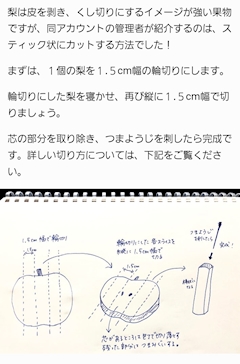 梨は皮を剥き、くし切りにするイメージが強い果物
ですが、同アカウントの管理者が紹介するのは、ス
ティック状にカットする方法でした！
まずは、１個の梨を１.５cm幅の輪切りにします。
輪切りにした梨を寝かせ、再び縦に１.５cm幅で切
りましょう。
芯の部分を取り除き、つまようじを刺したら完成で
す。詳しい切り方については、下記をご覧くださ
い。
1.5cm幅で輪切り
輪切りにした
1.5cm幅で
切る
つまようじを
完成!